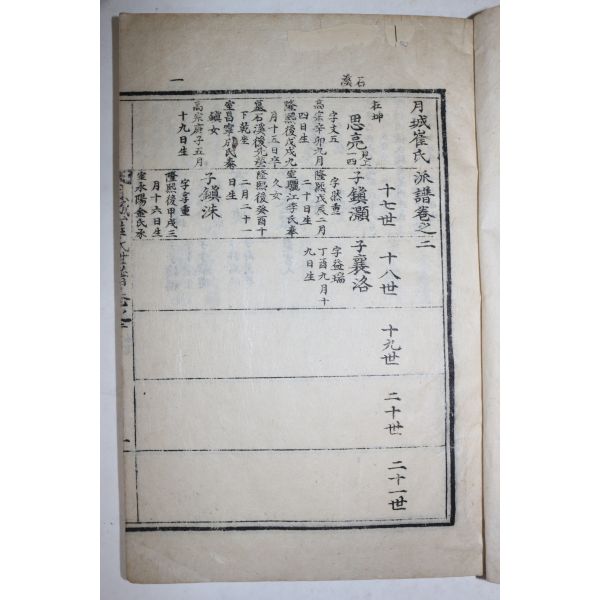 石溪
一
月城崔氏派譜卷之二
十七世
十八世
十九世
二十世
二十一世
在坤
思亮 見上一四
字文五
高宗辛卯九月
四日生
隆熙後戊戌九
月十五日卒
墓石溪後先塋
下乾坐
室昌寧成氏奉
鎭女
高宗庚子五月
十九日生
子鎭灝
字然重
隆熙戊辰二月
二十日生
室驪江李氏奉
久女
隆熙後癸酉十
二月二十一
日生
子鎭洙
字孝重
隆熙後甲戌三
月十六日生
室永陽金氏永
子襄洛
字益瑞
丁酉九月十
九日生